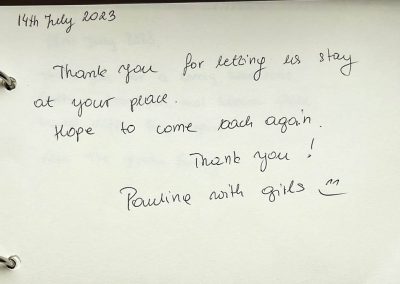 14th July 2023
Thank you for letting us stay
at your place.
Hope to come back again.
Thank you!
Pauline with girls